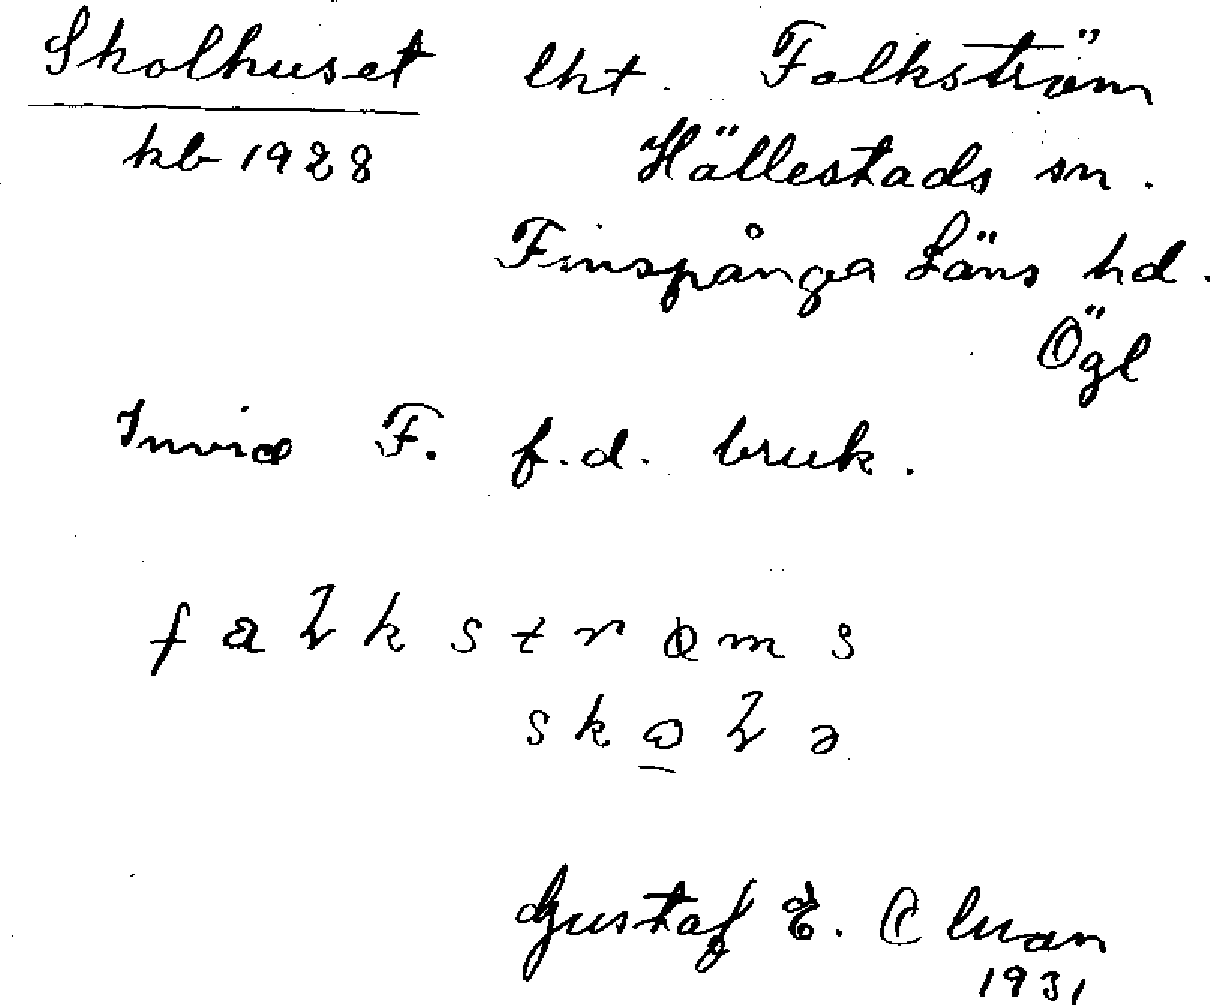 Skolhuset lht. Folkström
kb 1928 Hällestads sn.
Finspånga Läns hd.
Ögl
Invid F. f.d. bruk.
falkstrøms
skola
Gustaf E.
1931